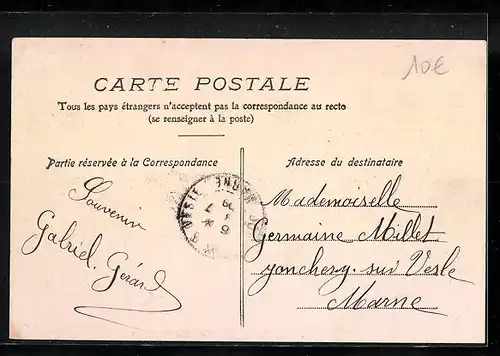 10€
CARTE POSTALE
Tous les pays étrangers n'acceptent pas la correspondance au recto
(se renseigner à la poste)
Partie réservée à la Correspondance
Souvenir
Gabriel Gérard
Adresse du destinataire
Mademoiselle
Germaine Millet
Jonchery sur Vesle
Marne